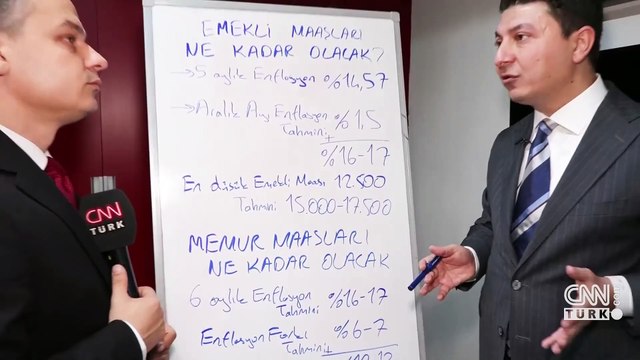 EMEKLİ MAAŞLARI
NE KADAR OLACAK?
→ 5 aylık Enflasyon %14,57
→ Aralık Ayı Enflasyon %1,5
Tahmini +
%16-17
En düşük Emekli Maaşı 12.500
Tahmini 15.000-17.500
MEMUR MAAŞLARI
NE KADAR OLACAK
6 aylık Enflasyon %16-17
Tahmini
Enflasyon Farkı %6-7
Tahmini +
CNN
TÜRK
CNN
TÜRK.com